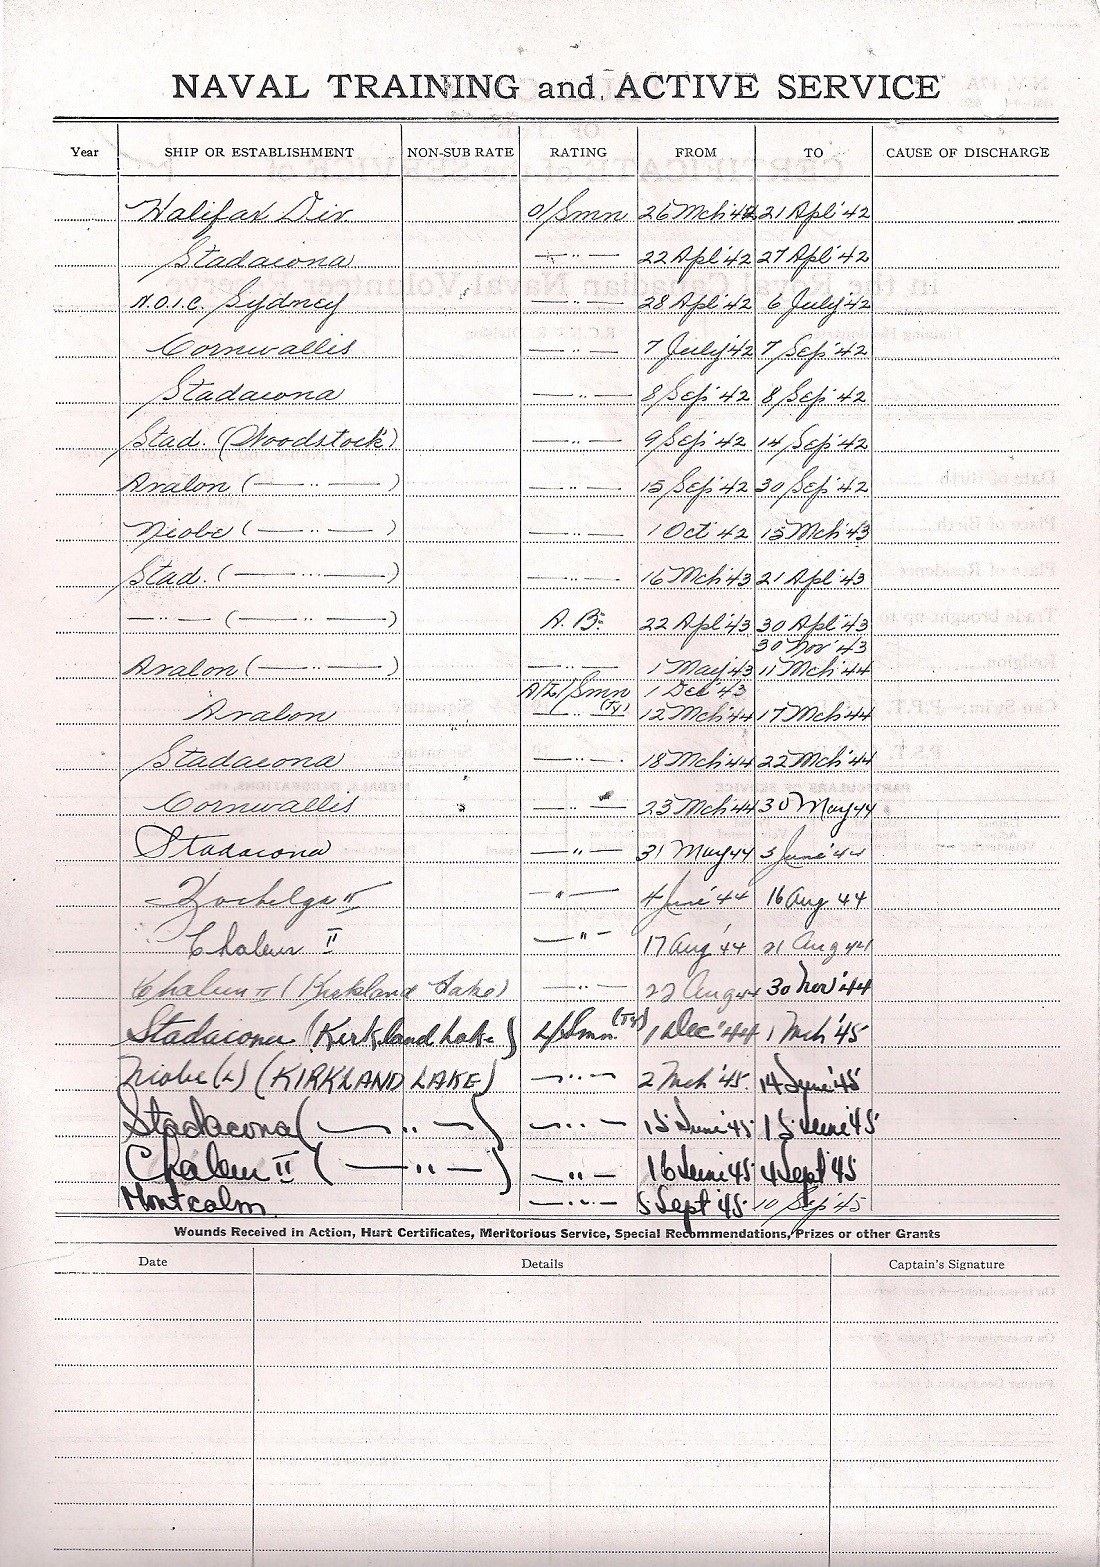 NAVAL TRAINING and ACTIVE SERVICE
Year SHIP OR ESTABLISHMENT NON-SUB RATE RATING FROM TO CAUSE OF DISCHARGE
Halifax Div O/Smn 26 Mch 42 21 Apl '42
Stadacona —··— 22 Apl '42 27 Apl '42
N.O.I.C. Sydney —··— 28 Apl '42 6 July '42
Cornwallis —··— 7 July '42 7 Sep '42
Stadacona —··— 8 Sep '42 8 Sep '42
Stad. (Woodstock) —··— 9 Sep '42 14 Sep '42
Avalon (—··—) —··— 15 Sep '42 30 Sep '42
Niobe (—··—) —··— 1 Oct '42 15 Mch '43
Stad. (—··—) —··— 16 Mch '43 21 Apl '43
—··— (—··—) A.B. 22 Apl '43 30 Apl '43
30 Nov '43
Avalon (—··—) —··— 1 May '43 11 Mch '44
A/L/Smn 1 Dec '43
Avalon —··— (Ty) 12 Mch '44 17 Mch '44
Stadacona —··— 18 Mch '44 22 Mch '44
Cornwallis —··— 23 Mch '44 30 May 44
Stadacona —··— 31 May 44 3 June '44
Hochelaga II —"— 4 June '44 16 Aug 44
Chaleur II —"— 17 Aug '44 21 Aug 44
Chaleur II (Kirkland Lake) —··— 22 Aug 44 30 Nov '44
Stadacona (Kirkland Lake) L/Smn. (Ty) 1 Dec '44 1 Mch '45
Niobe (L) (KIRKLAND LAKE) —··— 2 Mch '45. 14 June '45
Stadacona (—··—) —··— 15 June '45 15 June '45
Chaleur II (—··—) —"— 16 June 45 4 Sept '45
Montcalm —··— 5 Sept '45. 10 Sep '45
Wounds Received in Action, Hurt Certificates, Meritorious Service, Special Recommendations, Prizes or other Grants
Date Details Captain's Signature